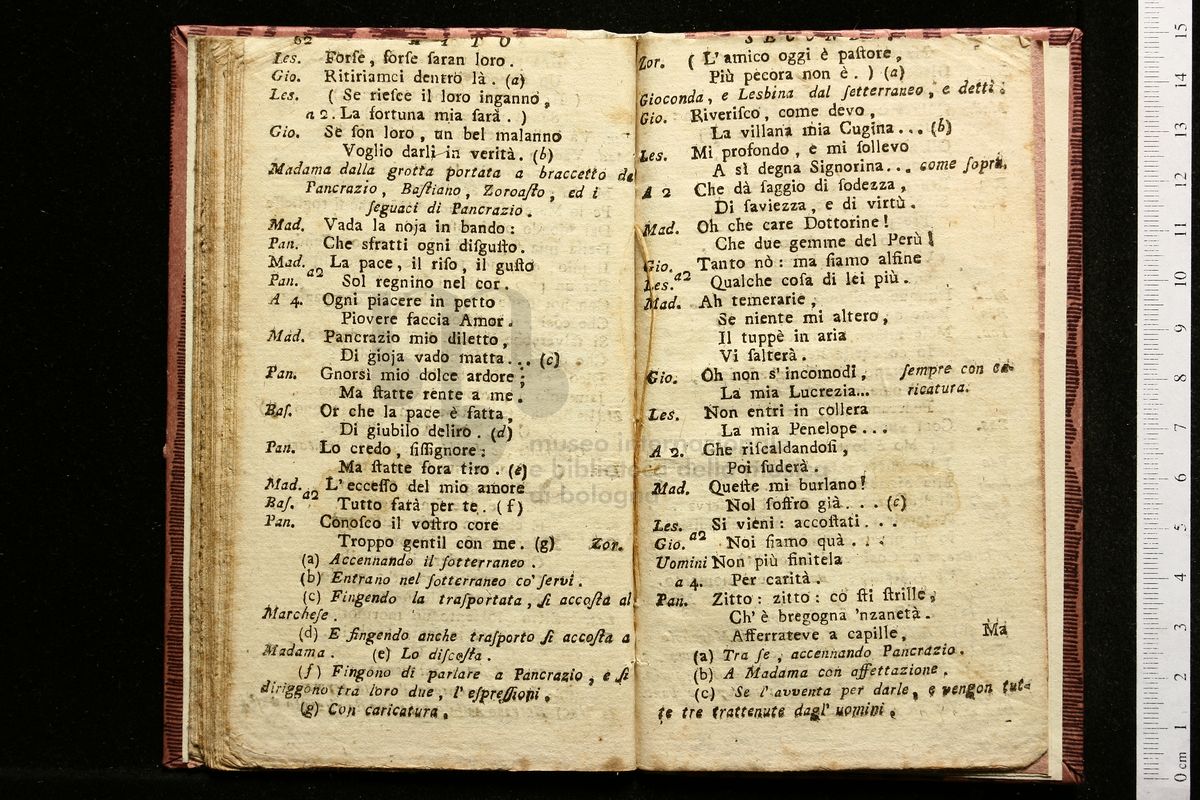 62 A T T O
Les. Forſe, forſe ſaran loro.
Gio. Ritiriamci dentro là. (a)
Les. ( Se rieſce il loro inganno,
a 2. La fortuna mia ſarà. )
Gio. Se ſon loro, un bel malanno
Voglio darli in verità. (b)
Madama dalla grotta portata a braccetto da
Pancrazio, Baſtiano, Zoroaſto, ed i
ſeguaci di Pancrazio.
Mad. Vada la noja in bando:
Pan. Che sfratti ogni diſguſto.
Mad. a2 La pace, il riſo, il guſto
Pan. Sol regnino nel cor.
A 4. Ogni piacere in petto
Piovere faccia Amor.
Mad. Pancrazio mio diletto,
Di gioja vado matta... (c)
Pan. Gnorsì mio dolce ardore;
Ma ſtatte rente a me.
Baſ. Or che la pace è fatta,
Di giubilo deliro. (d)
Pan. Lo credo, ſiſſignore:
Ma ſtatte fora tiro. (e)
Mad. a2 L'ecceſſo del mio amore
Baſ. Tutto ſarà per te. (f)
Pan. Conoſco il voſtro core
Troppo gentil con me. (g) Zor.
(a) Accennando il ſotterraneo.
(b) Entrano nel ſotterraneo co' ſervi.
(c) Fingendo la traſportata, ſi accoſta al
Marcheſe.
(d) E fingendo anche traſporto ſi accoſta a
Madama. (e) Lo diſcoſta.
(f) Fingono di parlare a Pancrazio, e ſi
diriggono tra loro due, l'eſpreſſioni.
(g) Con caricatura.
Zor. ( L'amico oggi è paſtore,
Più pecora non è. ) (a)
Gioconda, e Lesbina dal ſetterraneo, e detti:
Gio. Riveriſco, come devo,
La villana mia Cugina... (b)
Les. Mi profondo, e mi ſollevo
A sì degna Signorina... come ſopra.
A 2 Che dà ſaggio di ſodezza,
Di ſaviezza, e di virtù.
Mad. Oh che care Dottorine!
Che due gemme del Perù!
Gio. Tanto nò: ma ſiamo alfine
Les. a2 Qualche coſa di lei più.
Mad. Ah temerarie,
Se niente mi altero,
Il tuppè in aria
Vi ſalterà.
Gio. Oh non s'incomodi, ſempre con ca-
La mia Lucrezia... ricatura.
Les. Non entri in collera
La mia Penelope...
A 2. Che riſcaldandoſi,
Poi ſuderà.
Mad. Queſte mi burlano!
Nol ſoffro già... (c)
Les. Si vieni: accoſtati...
Gio. a2 Noi ſiamo quà...
Uomini Non più finitela
a 4. Per carità.
Pan. Zitto: zitto: co ſti ſtrille,
Ch'è bregogna 'nzanetà.
Afferrateve a capille, Ma
(a) Tra ſe, accennando Pancrazio.
(b) A Madama con affettazione.
(c) Se l'avventa per darle, e vengon tut-
te tre trattenute dagl' uomini.
museo internazionale
e biblioteca della
di bologna